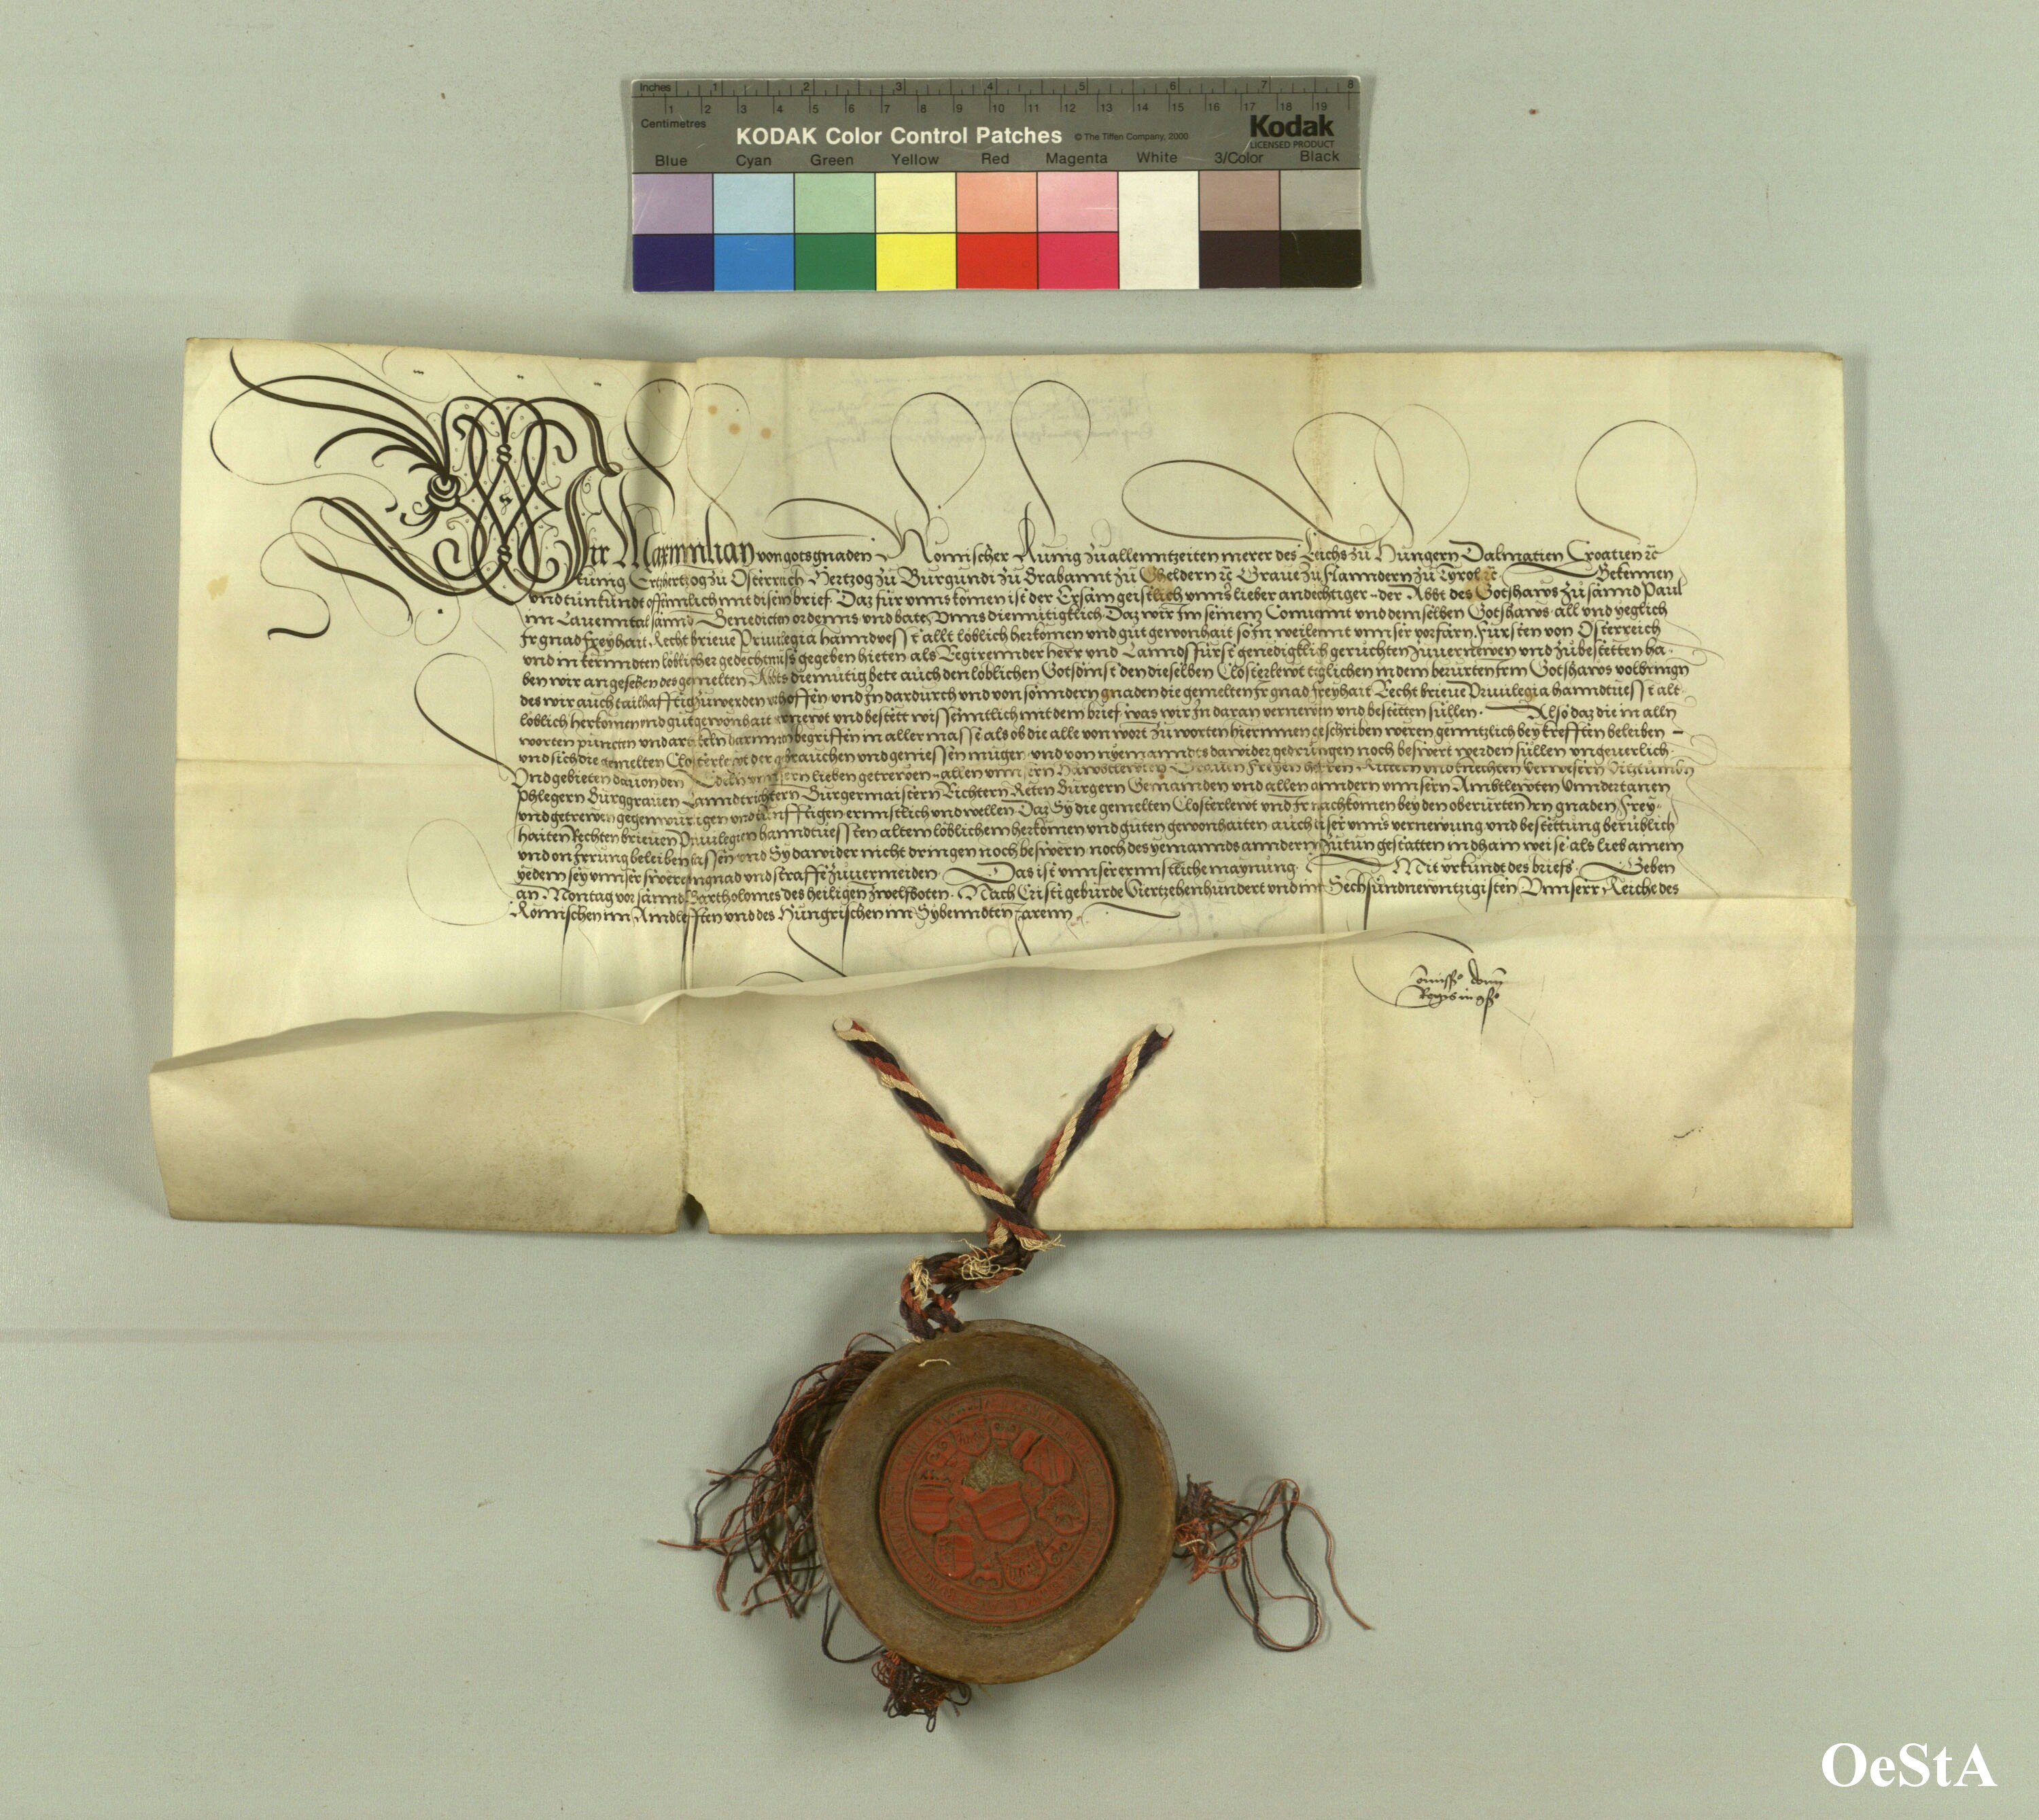 Inches 1 2 3 4 5 6 7 8
1 2 3 4 5 6 7 8 9 10 11 12 13 14 15 16 17 18 19
Centimetres
KODAK Color Control Patches © The Tiffen Company, 2000 Kodak
LICENSED PRODUCT
Blue Cyan Green Yellow Red Magenta White 3/Color Black
Wir Maximilian von gots gnaden Römischer Kunig zu allenntzeiten merer des Reichs zu Hungern Dalmatien Croatien ꝛc
kunig Ertzhertzog zu Osterreich Hertzog zu Burgundi zu Brabannt zu Gheldern ꝛc Graue zu Flanndern zu Tyrol ꝛc Bekennen
vnd tun kundt offennlich mit disem brief. Daz für vnns komen ist der Ersam geistlich vnns lieber andechtiger der Abbt des Gotshaws zu sannd Paul
im Lauenntal sannd Benedicten ordenns vnd bate vnns diemütigklich Daz wir Im seinem Conuennt vnd demselben Gotshaws all vnd yeglich
Ir gnad freyhait Recht brieue Priuilegia hanndvesst allt löblich herkomen vnd gut gewonhait so In weilennt vnnser vorfarn Fürsten von Osterreich
vnd in kernndten löblicher gedechtnuss gegeben hieten als Regirennder herr vnd Lanndsfürst genedigklich geruchten zuuernewen vnd zubestetten ha-
ben wir angesehen des gemelten Abbts diemütig bete auch den löblichen Gotsdinst den dieselben Closterlewt teglichen in dem berurtenfem Gotshaws volbringn
des wir auch tailhafftig zuwerden verhoffen vnd In dardurch vnd von sonndern gnaden die gemelten Ir gnad freyhait Recht brieue Priuilegia hanndtuesst alt
löblich herkomen vnd gut gewonhait vernewt vnd bestett wissenntlich mit dem brief was wir In daran vernewen vnd bestetten süllen. Also daz die in alln
worten puncten vnd artickeln darinn begriffen in aller masse als ob die alle von wort zu worten hierinnen geschriben weren genntzlich bey krefften beleiben
vnd sich die gemelten Closterlewt der gebrauchen vnd geniessen mügen vnd von nyemannds dawider gedrungen noch beswert werden süllen vngeuerlich.
Vnd gebieten dauon den Edeln vnnsern lieben getrewen allen vnnsern Grauen Freyen herren Rittern vnd knechten verwesern Vitztumbn
Phlegern Burggrauen Lanndtrichtern Burgermaistern Richtern Reten Burgern Gemainden vnd allen anndern vnnsern Ambtlewten Vnndertanen
vnd getrewen gegenwurtigen vnd kunfftigen ernnstlich vnd wellen Daz Sy die gemelten Closterlewt vnd Ir nachkomen bey den oberürten Irn gnaden Frey-
haiten Rechten brieuen Priuilegien hanndtuessten altem löblichem herkomen vnd guten gewonhaiten auch diser vnns vernewung vnd bestettung berüblich
vnd on Irrung beleiben lassen vnd Sy dawider nicht dringen noch beswern noch des yemannds anndern zutun gestatten in dhain weise als lieb ainem
yedem sey vnnser swere vngnad vnd straffe zuuermeiden Das ist vnnser ernnstliche maynung. Mit vrkundt des briefs. Geben
an Montag vor sannd Bartholomes des heiligen zwelfboten. Nach Cristi geburde Viertzehenhundert vnd im Sechsundnewntzigisten Vnnserr Reiche des
Römischen im Aindlefften vnd des Hungrischen im Sybenndten Jarenn.
Comissio domini
Regis in
OeStA